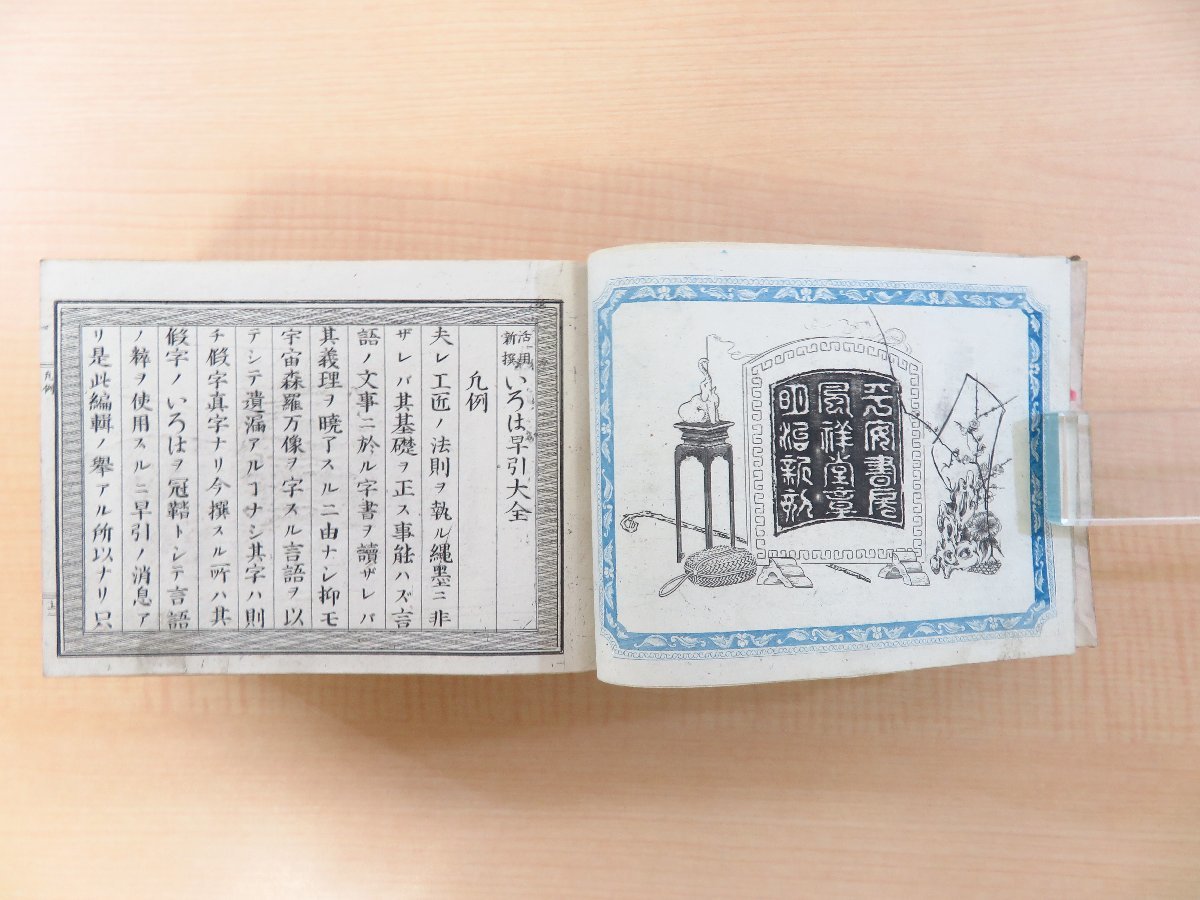 平安書房
風祥堂章
明治新刻
活用
新撰
いろは早引大全
凡例
夫レ工匠ノ法則ヲ執ル繩墨ニ非
ザレバ其基礎ヲ正ス事能ハズ言
語ノ文事ニ於ル字書ヲ讀ザレバ
其義理ヲ曉了スルニ由ナシ抑モ
宇宙森羅万像ヲ字スル言語ヲ以
テシテ遺漏アルヿナシ其字ハ則
チ假字真字ナリ今撰スル所ハ其
假字ノいろはヲ冠鞜トシテ言語
ノ粹ヲ使用スルニ早引ノ消息ア
リ是此編輯ノ擧アル所以ナリ只
凡例
上一